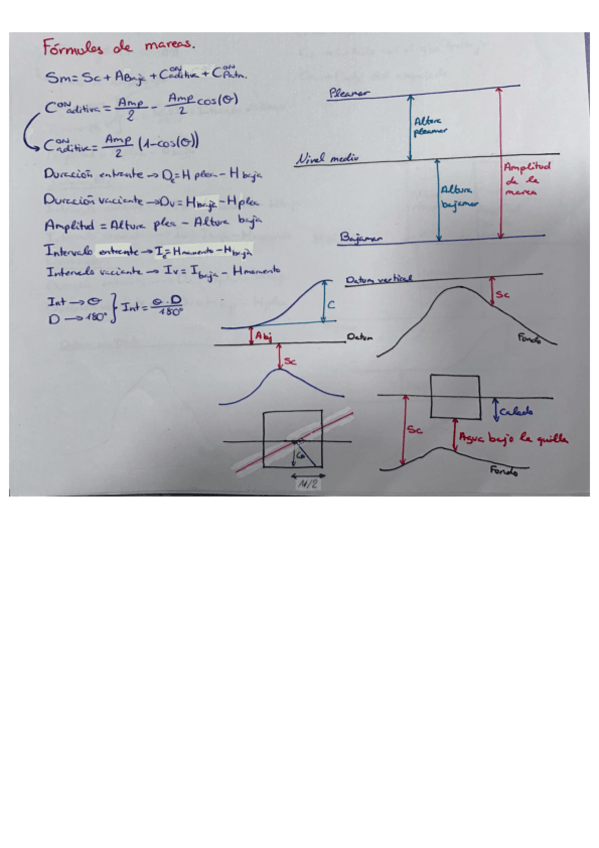 Fórmulas de mareas.
Sm = Sc + A Baja + C^on aditiva + C^on Patm.
C^on aditiva = Amp/2 - Amp/2 cos(θ)
C^on aditiva = Amp/2 (1-cos(θ))
Duración entrante → De = H plea - H baja
Duración vaciante → Dv = H baja - H plea
Amplitud = Altura plea - Altura baja
Intervalo entrante → Ie = H momento - H baja
Intervalo vaciante → Iv = I baja - H momento
Int → θ
D → 180°
} Int = θ·D/180°
Pleamar
Altura pleamar
Nivel medio
Amplitud de la marea
Altura bajamar
Bajamar
Datum vertical
Sc
Fondo
C
Abj
Datum
Sc
Calado
Sc
Agua bajo la quilla
Fondo
M/2